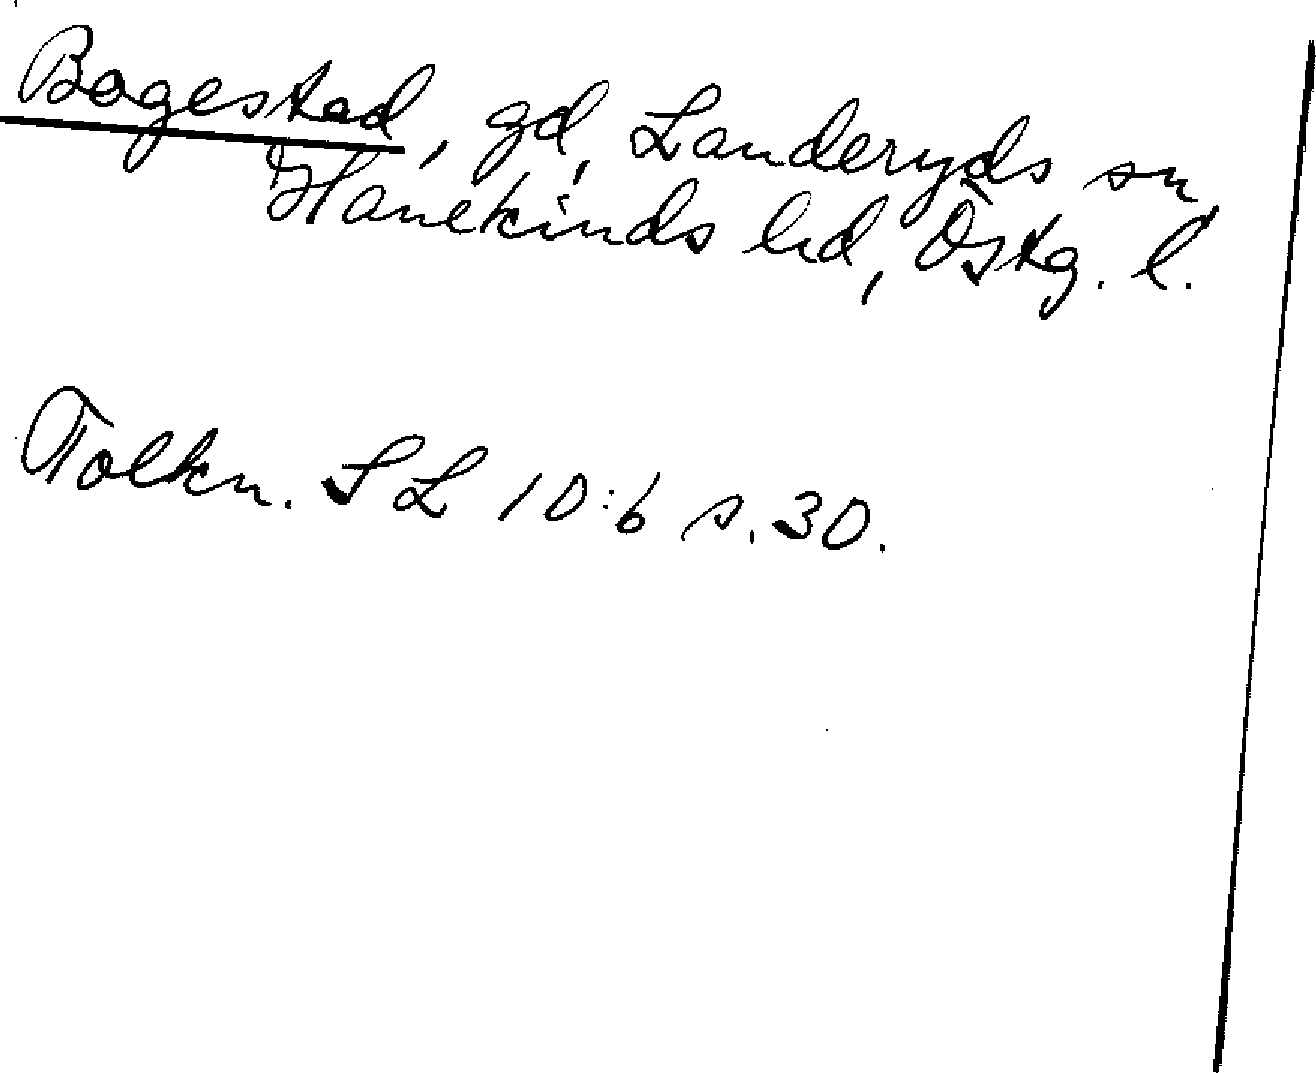 Bogestad, gd, Landeryds sn,
Hanekinds hd, Östg. l.
Tolkn. SL 10:6 s. 30.